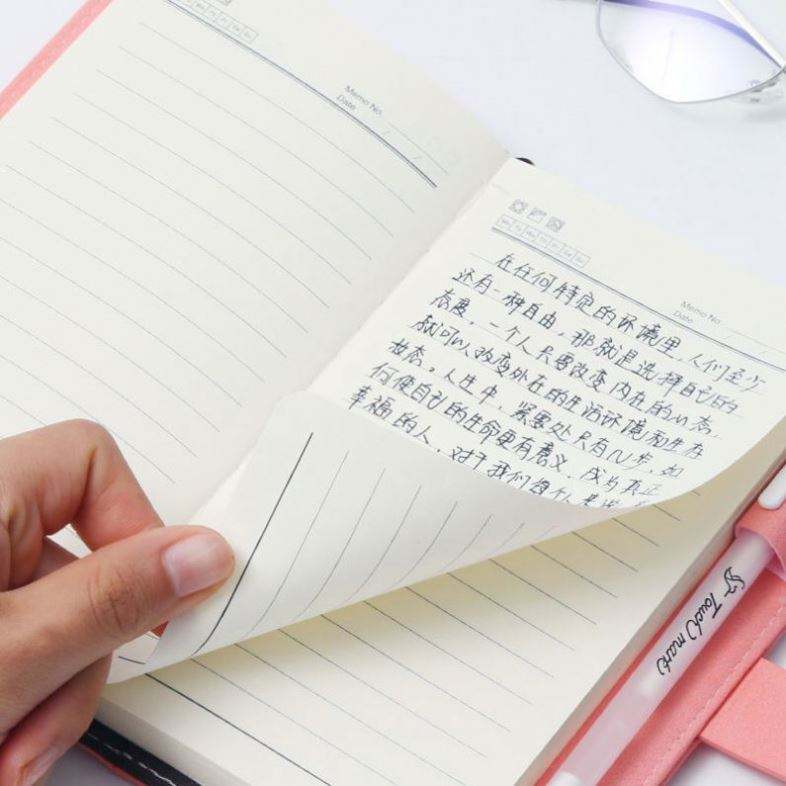 Memo No.
Date
Memo No.
Date
在任何特定的环境里，人们至少
还有一种自由，那就是选择自己的
态度，一个人只要改变内在的心态，
就可以改变外在的生活环境和生存
状态。人生中，紧要处只有几步，如
何使自己的生命更有意义，成为真正
幸福的人，对于我们每个人来说
Touch mark